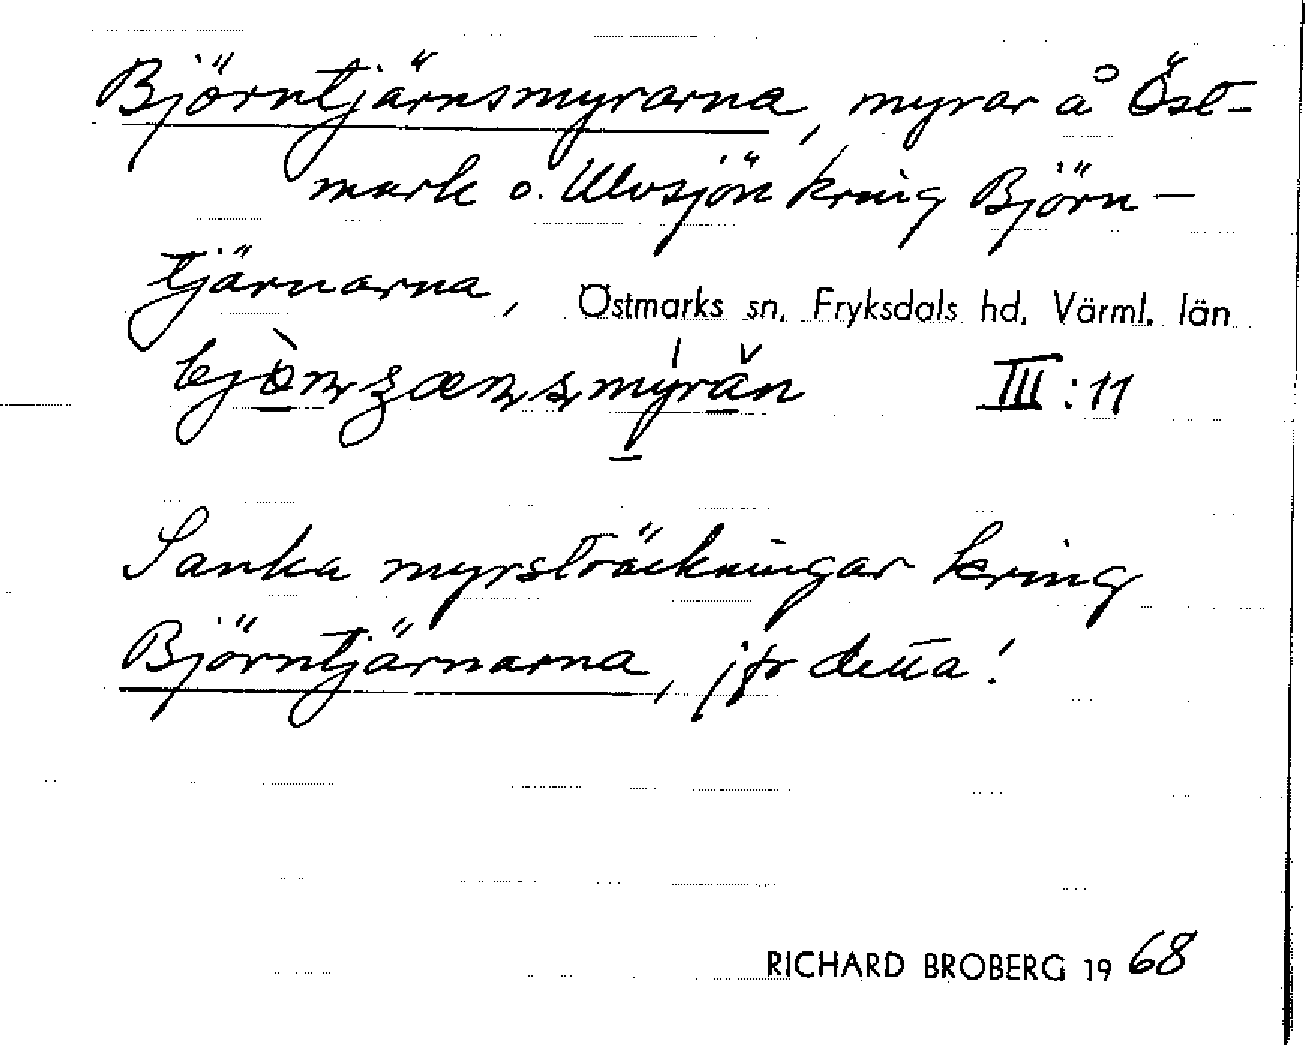 Björntjärnsmyrarna, myrar å Öst-
mark o. Ulvsjön kring Björn-
tjärnarna, Östmarks sn. Fryksdals hd. Värml. län
III:11
Sanka myrsträckningar kring
Björntjärnarna, jfr detta!
RICHARD BROBERG 1968